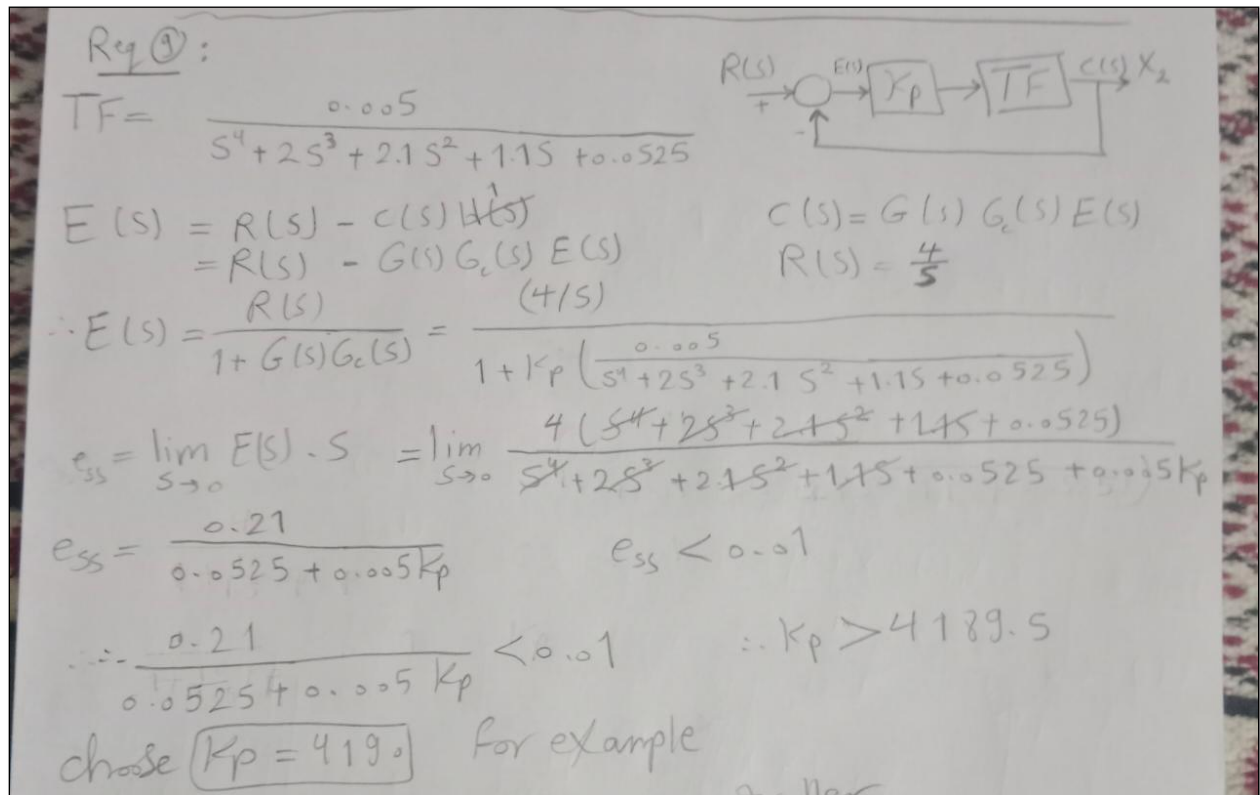 Req ⑨:
R(S) + - E(s) Kp TF C(s) X₂
TF = 0.005 / (S⁴ + 2S³ + 2.1S² + 1.1S + 0.0525)
E(S) = R(S) - C(S) H(S) 1
C(S) = G(S) G꜀(S) E(S)
= R(S) - G(S) G꜀(S) E(S)
R(S) = 4/S
∴ E(S) = R(S) / (1 + G(S)G꜀(S)) = (4/S) / (1 + Kp (0.005 / (S⁴ + 2S³ + 2.1S² + 1.1S + 0.0525)))
eₛₛ = lim S→0 E(S) . S = lim S→0 4(S⁴ + 2S³ + 2.1S² + 1.1S + 0.0525) / (S⁴ + 2S³ + 2.1S² + 1.1S + 0.0525 + 0.005Kp)
eₛₛ = 0.21 / (0.0525 + 0.005Kp) eₛₛ < 0.01
∴ 0.21 / (0.0525 + 0.005 Kp) < 0.01 ∴ Kp > 4189.5
choose Kp = 4190 for example